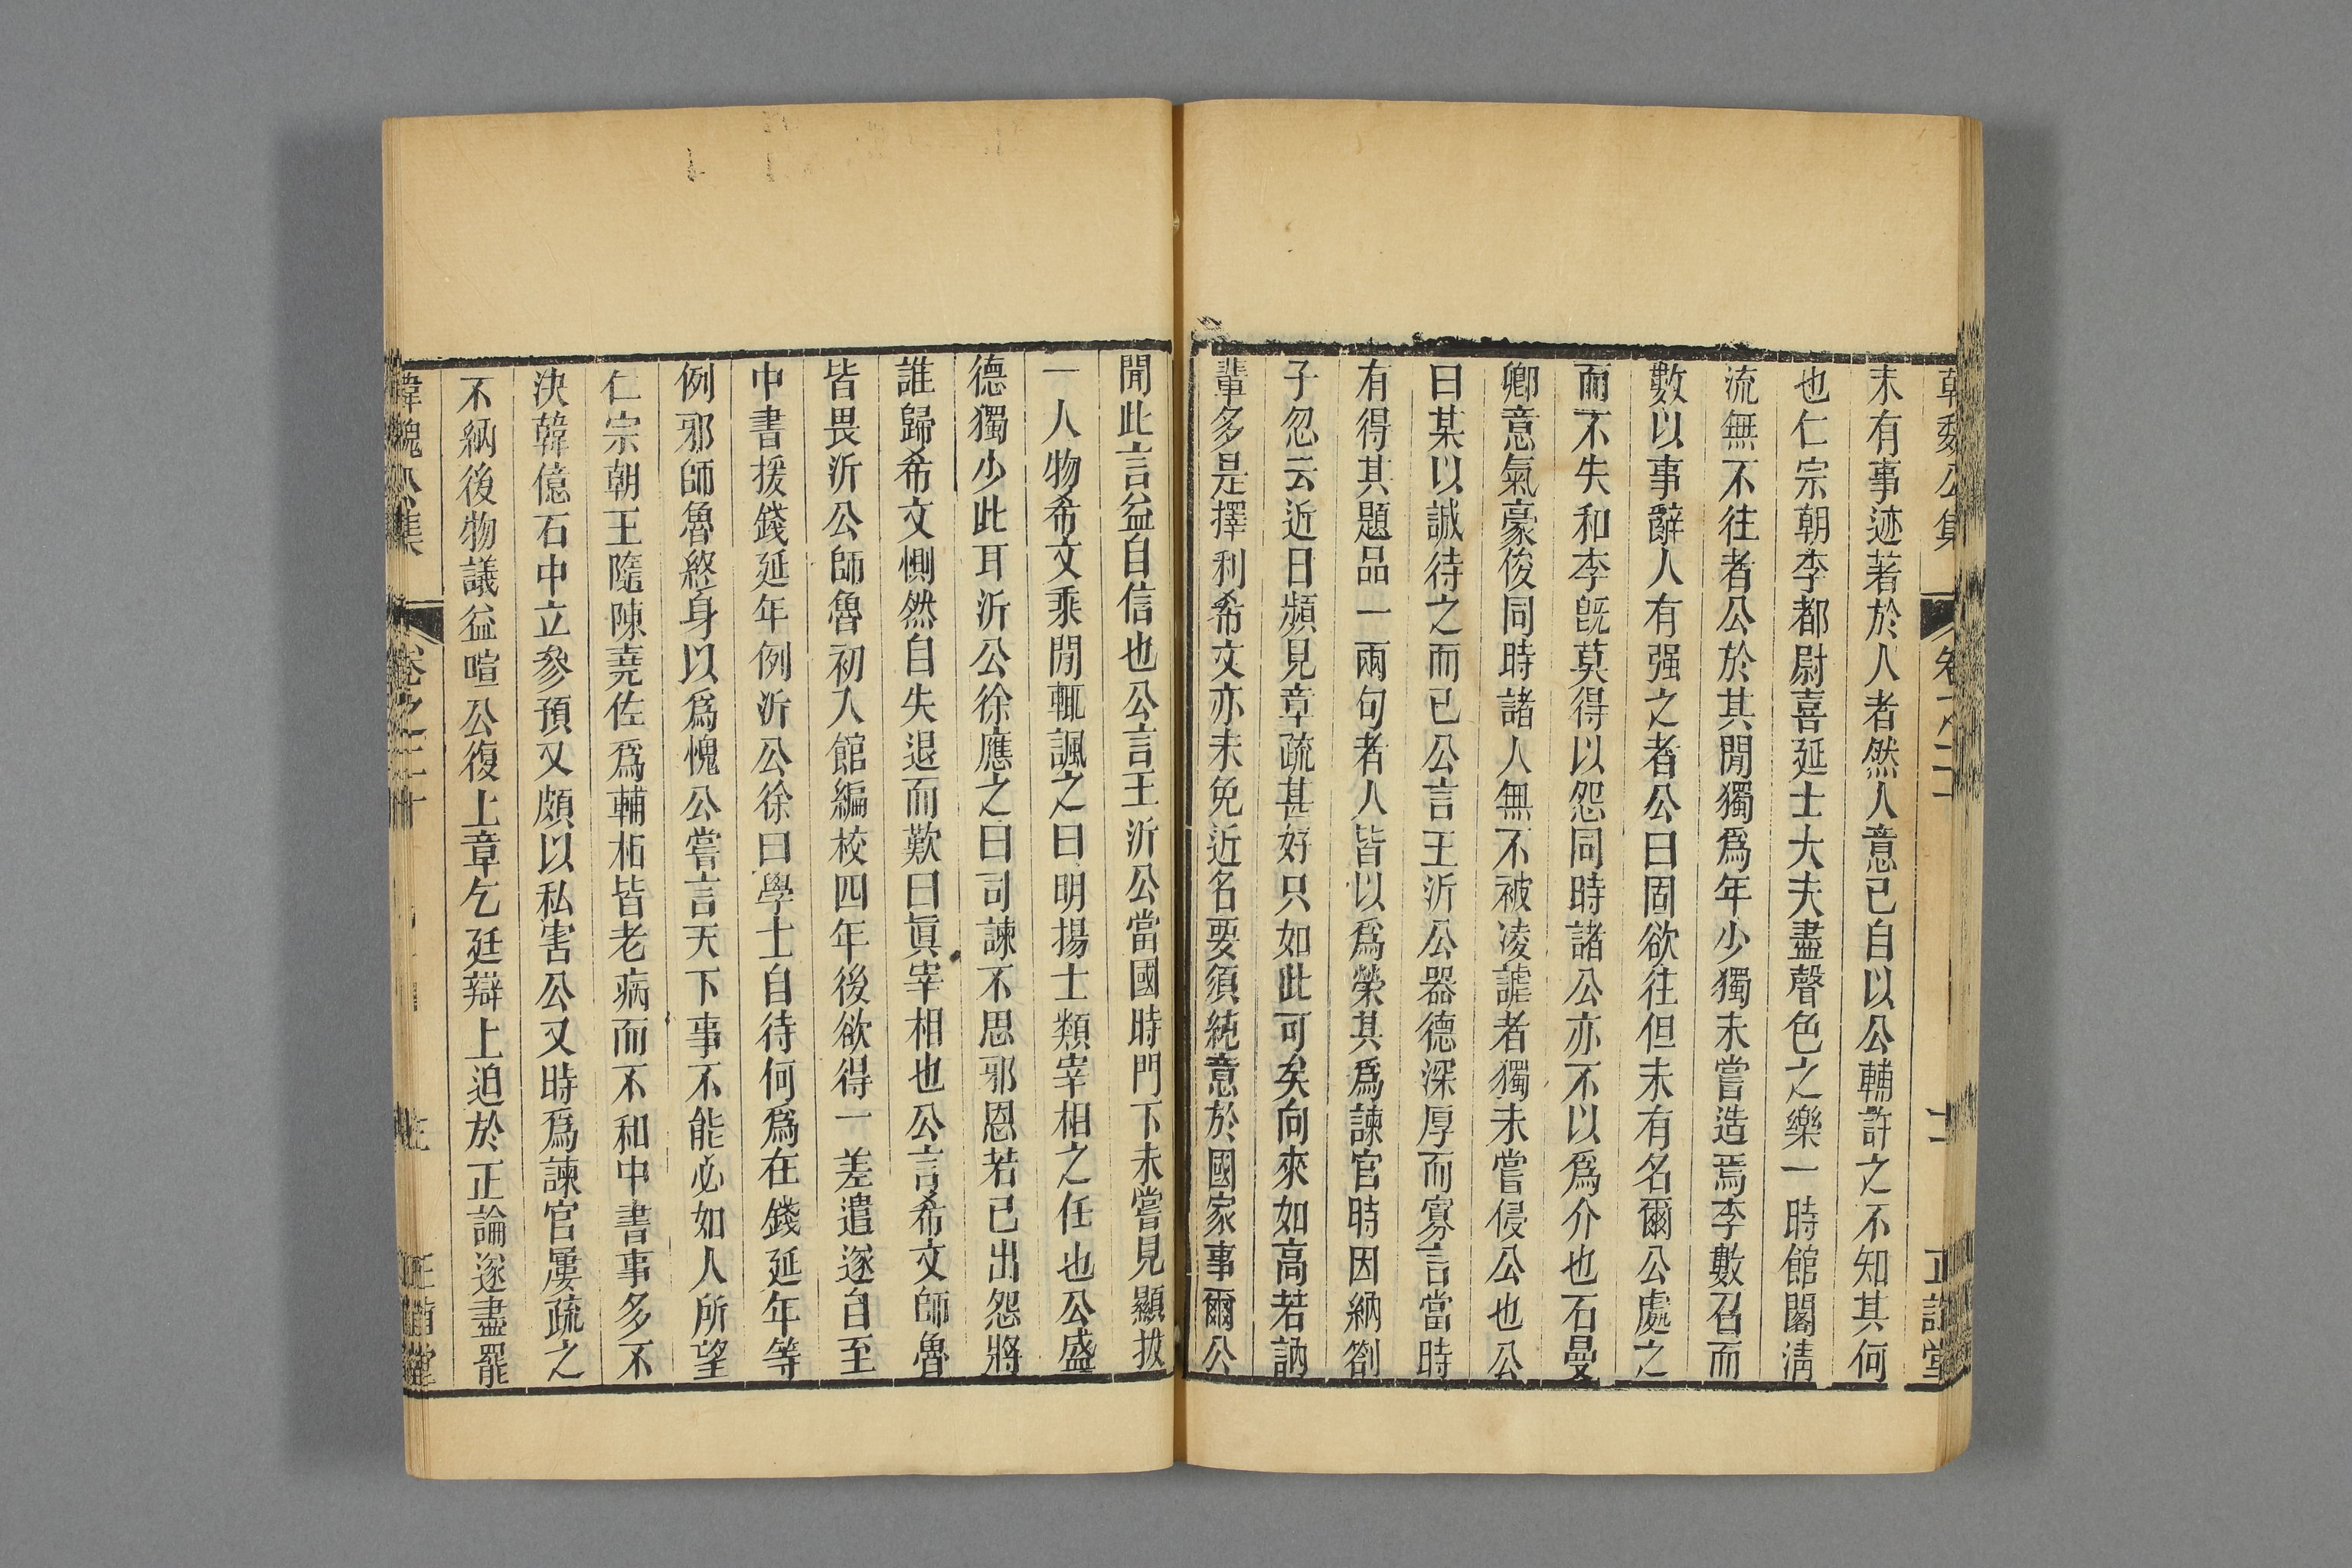 韓魏公集 卷之二十 十二 正誼堂
末有事迹著於人者然人意已自以公輔許之不知其何
也仁宗朝李都尉喜延士大夫盡聲色之樂一時館閣清
流無不往者公於其閒獨爲年少獨未嘗造焉李數召而
數以事辭人有强之者公曰固欲往但未有名爾公處之
而不失和李旣莫得以怨同時諸公亦不以爲介也石曼
卿意氣豪俊同時諸人無不被凌謔者獨未嘗侵公也公
曰某以誠待之而已公言王沂公器德深厚而寡言當時
有得其題品一兩句者人皆以爲榮其爲諫官時因納劄
子忽云近日頻見章疏甚好只如此可矣向來如高若訥
輩多是擇利希文亦未免近名要須純意於國家事爾公
聞此言益自信也公言王沂公當國時門下未嘗見顯拔
一人物希文乘閒輒諷之曰明揚士類宰相之任也公盛
德獨少此耳沂公徐應之曰司諫不思邪恩若己出怨將
誰歸希文惻然自失退而歎曰眞宰相也公言希文師魯
皆畏沂公師魯初入館編校四年後欲得一差遣遂自至
中書援錢延年例沂公徐曰學士自待何爲在錢延年等
例邪師魯終身以爲愧公嘗言天下事不能必如人所望
仁宗朝王隨陳堯佐爲輔相皆老病而不和中書事多不
決韓億石中立參預又頗以私害公又時爲諫官屢疏之
不納後物議益喧公復上章乞廷辯上迫於正論遂盡罷
韓魏公集 卷之二十 正誼堂